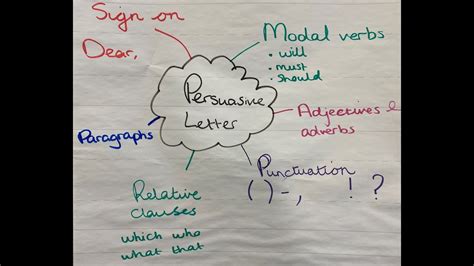 Sign on
Dear,
Modal verbs
• will
• must
• should
Persuasive
Letter
Adjectives &
adverbs
Paragraphs
Punctuation
( ) - , ! ?
Relative
clauses
which who
what that